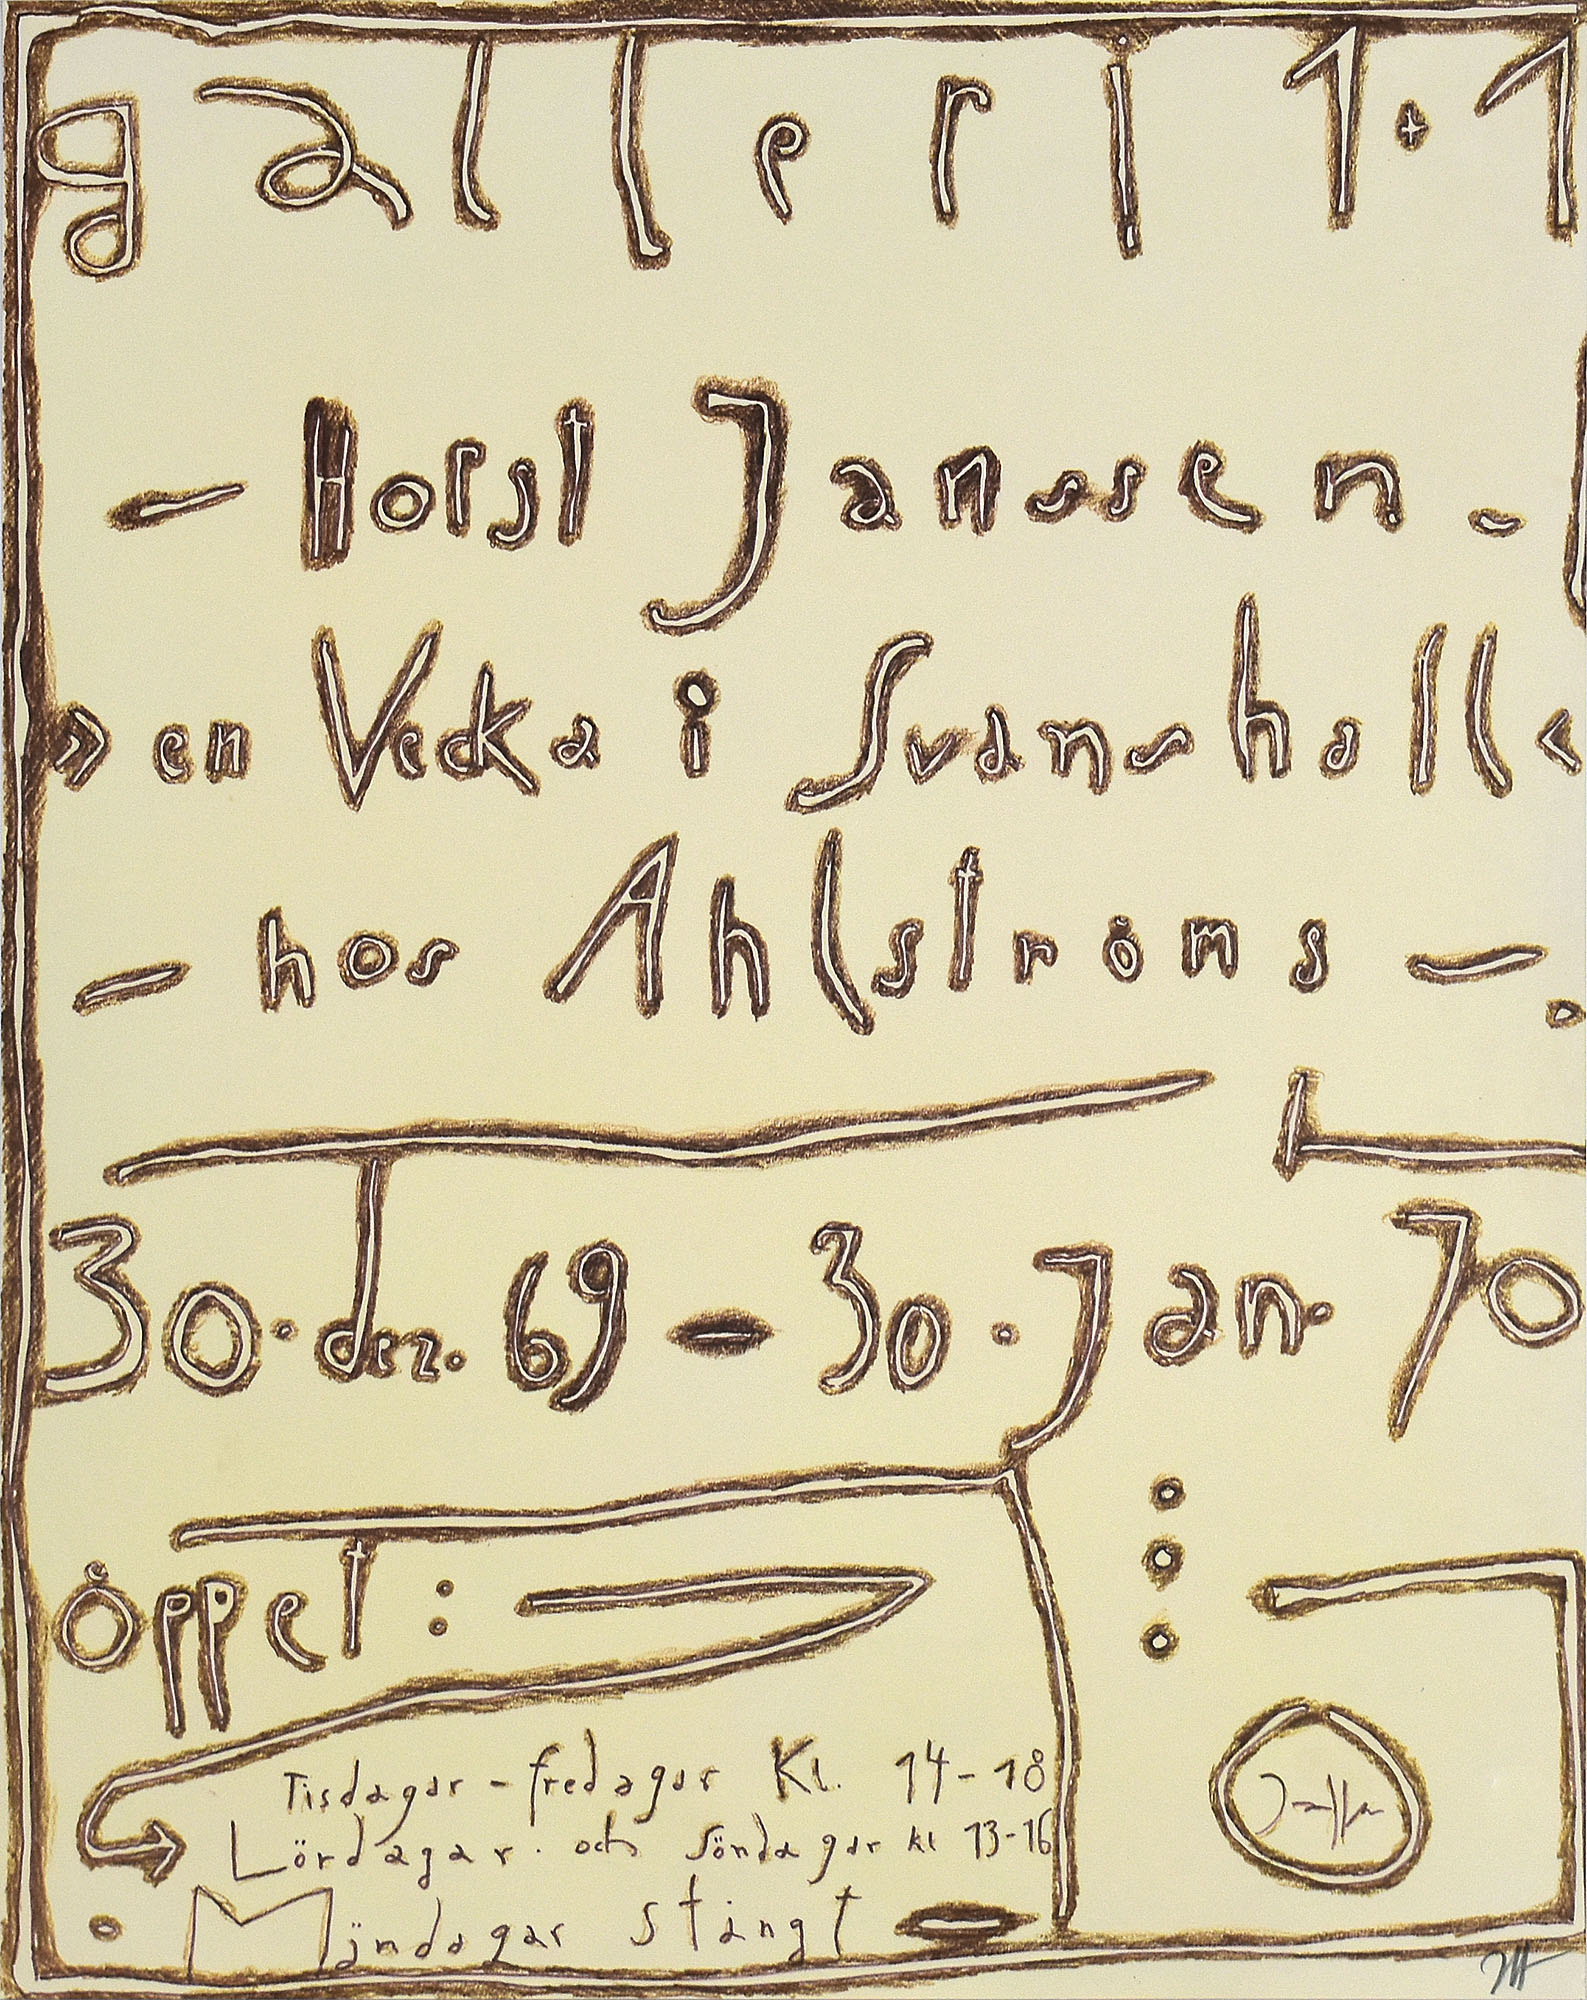 galleri 1·1
– Horst Janssen –
» en Vecka i Svansholl «
– hos Ahlströms –.
30. dez. 69 – 30. Jan. 70
öppet :
Tisdagar – fredagar Kl. 14–18
Lördagar. och Söndagar kl 13–16
Måndagar stängt –